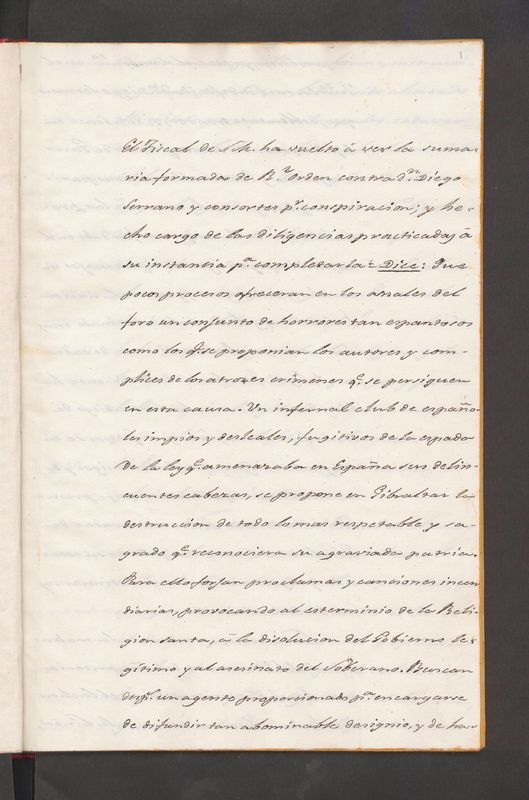 1
El Fiscal de S.M. ha vuelto á ver la suma-
ria formada de R.l orden contra d.n Diego
Serrano y consortes p.r conspiracion; y he-
cho cargo de las diligencias practicadas á
su instancia p.a completarla = Dice: Que
pocos procesos ofreceran en los anales del
foro un conjunto de horrores tan espantosos
como los q.e se proponian los autores y com-
plices de los atrozes crimenes q.e se persiguen
en esta causa. Un infernal club de españo-
les impios y desleales, fugitivos de la espada
de la ley q.e amenazaba en España sus delin-
cuentes cabezas, se propone en Gibraltar la
destruccion de todo lo mas respetable y sa-
grado q.e reconociera su agraviada patria.
Para ello forjan proclamas y canciones incen
diarias, provocando al esterminio de la Reli-
gion santa, á la disolucion del Gobierno le-
gitimo y al asesinato del Soberano. Buscan
desp.s un agente proporcionado p.a encargarse
de difundir tan abominable designio, y de ha-